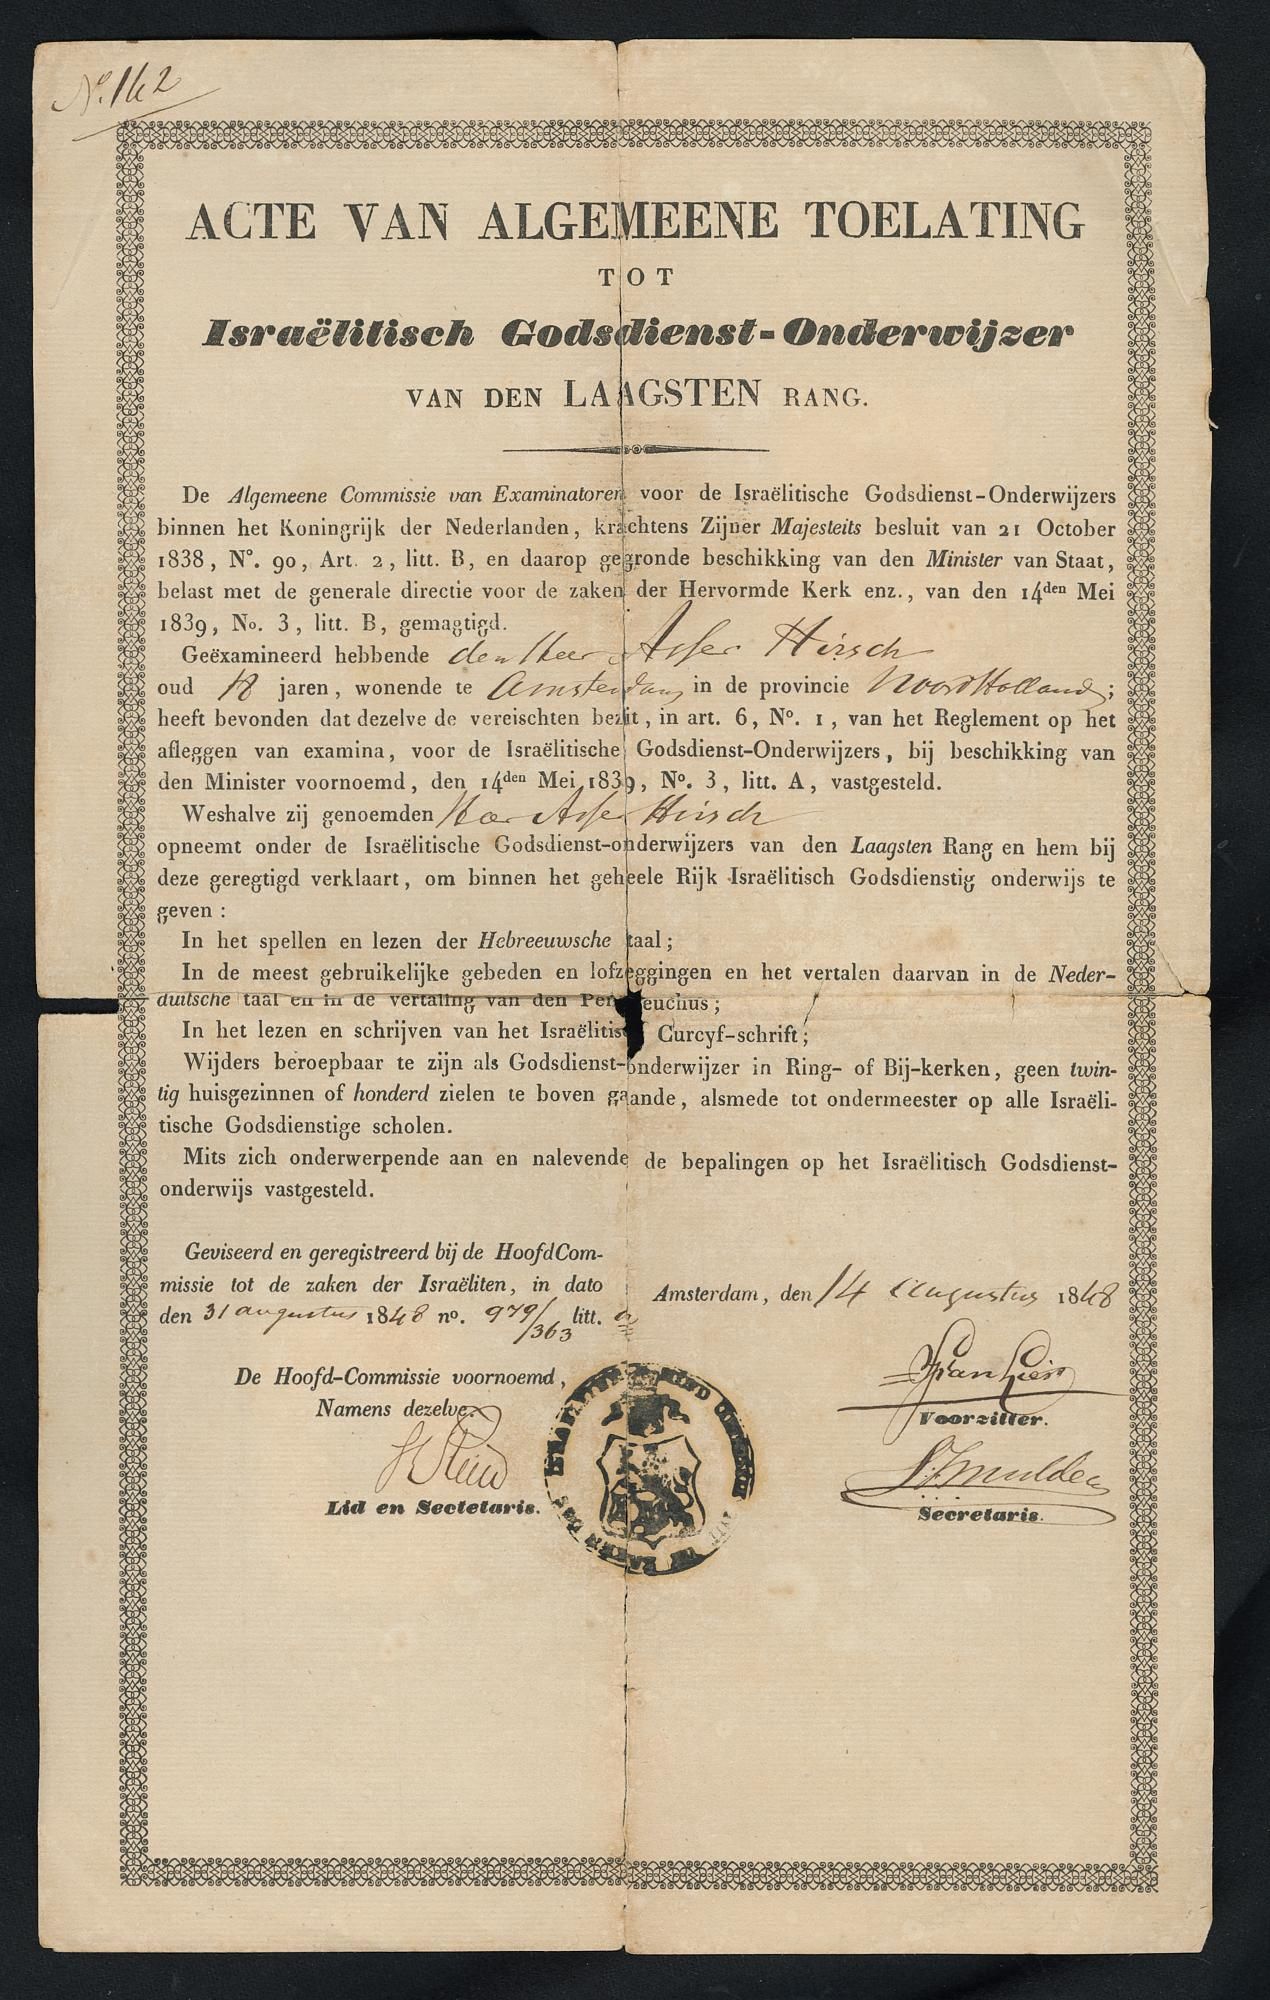 No. 142
ACTE VAN ALGEMEENE TOELATING
TOT
Israëlitisch Godsdienst-Onderwijzer
VAN DEN LAAGSTEN RANG.
De Algemeene Commissie van Examinatoren voor de Israëlitische Godsdienst-Onderwijzers
binnen het Koningrijk der Nederlanden, krachtens Zijner Majesteits besluit van 21 October
1838, N°. 90, Art. 2, litt. B, en daarop gegronde beschikking van den Minister van Staat,
belast met de generale directie voor de zaken der Hervormde Kerk enz., van den 14den Mei
1839, No. 3, litt. B, gemagtigd.
Geëxamineerd hebbende den Heer Asser Hirsch
oud 18 jaren, wonende te Amsterdam in de provincie Noord Holland;
heeft bevonden dat dezelve de vereischten bezit, in art. 6, N°. 1, van het Reglement op het
afleggen van examina, voor de Israëlitische Godsdienst-Onderwijzers, bij beschikking van
den Minister voornoemd, den 14den Mei 1839, N°. 3, litt. A, vastgesteld.
Weshalve zij genoemden Heer Asser Hirsch
opneemt onder de Israëlitische Godsdienst-onderwijzers van den Laagsten Rang en hem bij
deze geregtigd verklaart, om binnen het geheele Rijk Israëlitisch Godsdienstig onderwijs te
geven:
In het spellen en lezen der Hebreeuwsche taal;
In de meest gebruikelijke gebeden en lofzeggingen en het vertalen daarvan in de Neder-
duitsche taal en in de vertaling van den Pentateuchus;
In het lezen en schrijven van het Israëlitisch Curcyf-schrift;
Wijders beroepbaar te zijn als Godsdienst-onderwijzer in Ring- of Bij-kerken, geen twin-
tig huisgezinnen of honderd zielen te boven gaande, alsmede tot ondermeester op alle Israëli-
tische Godsdienstige scholen.
Mits zich onderwerpende aan en nalevende de bepalingen op het Israëlitisch Godsdienst-
onderwijs vastgesteld.
Geviseerd en geregistreerd bij de HoofdCom-
missie tot de zaken der Israëliten, in dato
den 31 augustus 1848 no. 979/363 litt.
Amsterdam, den 14 augustus 1848
De Hoofd-Commissie voornoemd,
Namens dezelve.
Lid en Sectetaris.
van Lier
Voorzitter.
S. J. Mulder
Secretaris.